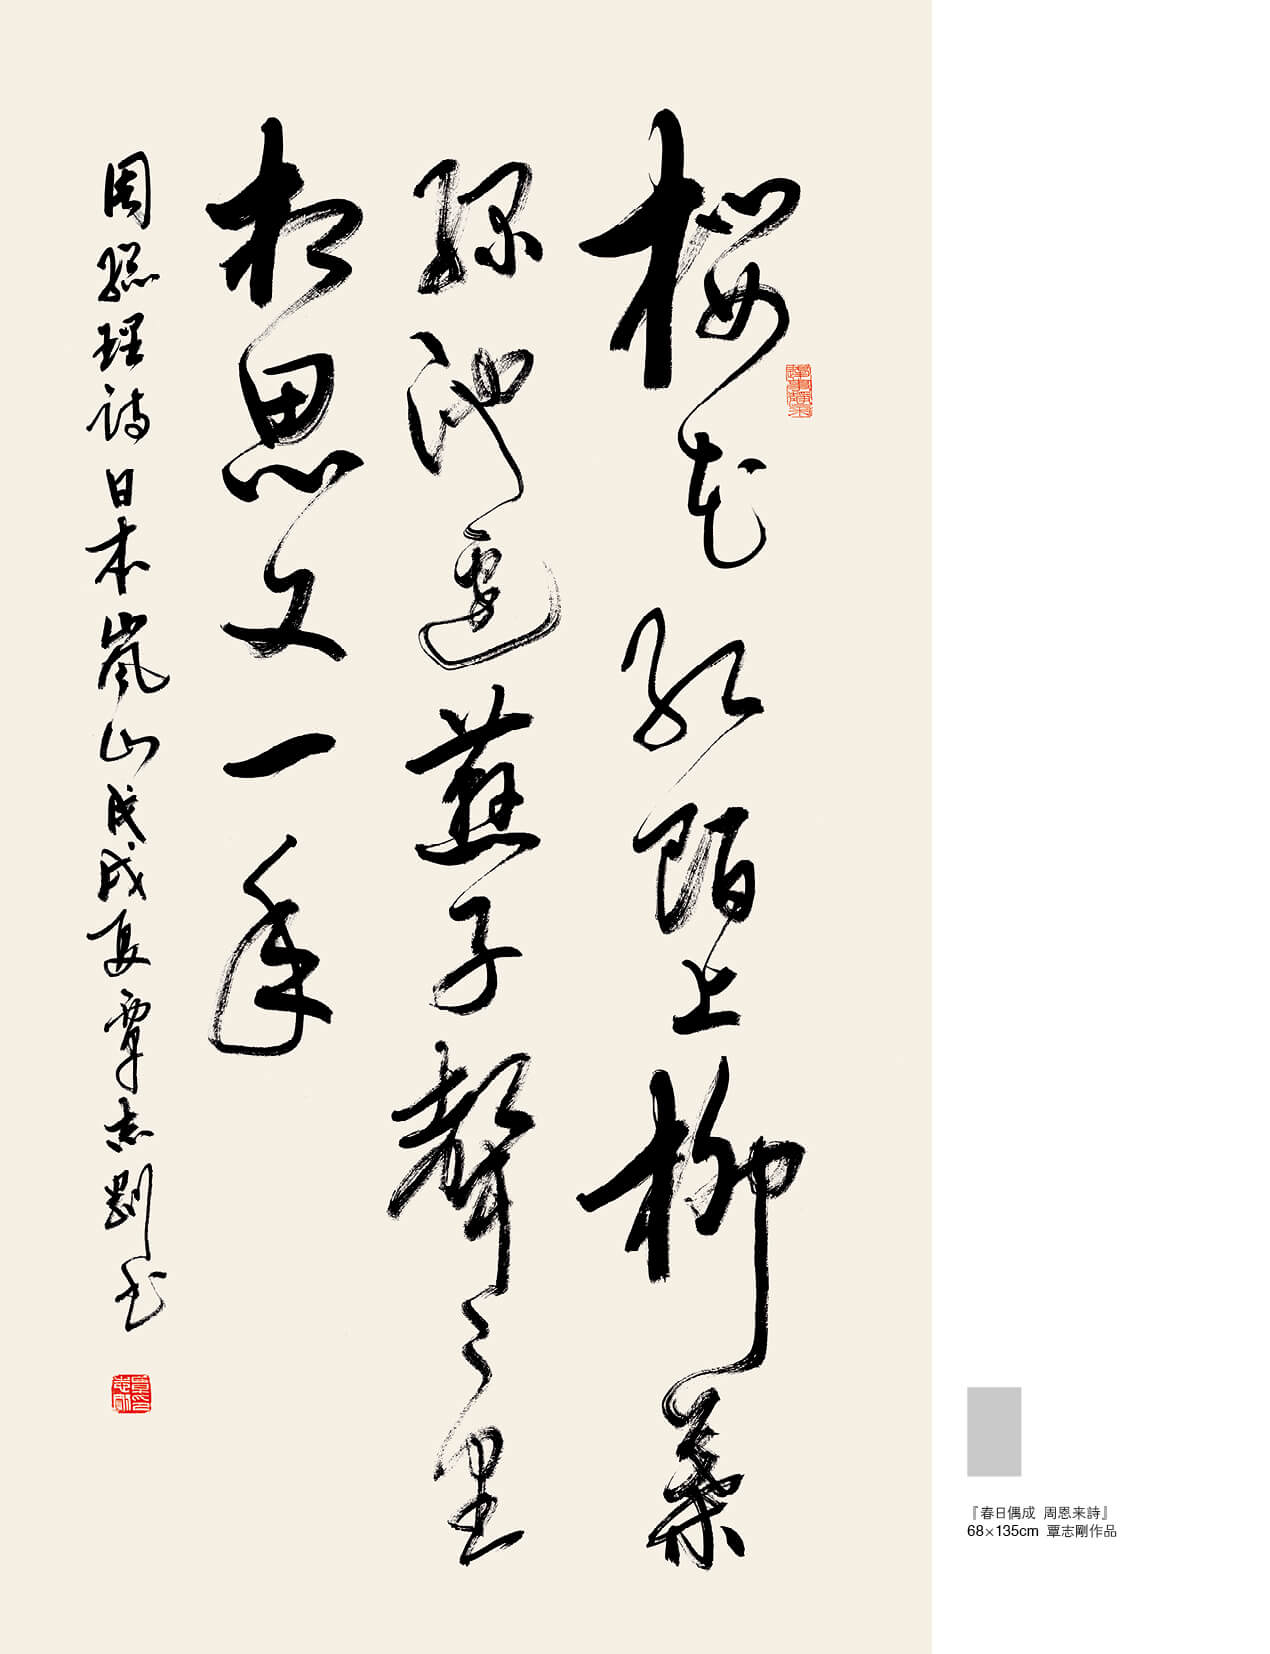 桜花紅陌上柳葉
綠池邊燕子聲々里
相思又一年
周總理詩日本嵐山戊戌夏覃志剛书
『春日偶成 周恩来詩』
68×135cm 覃志剛作品